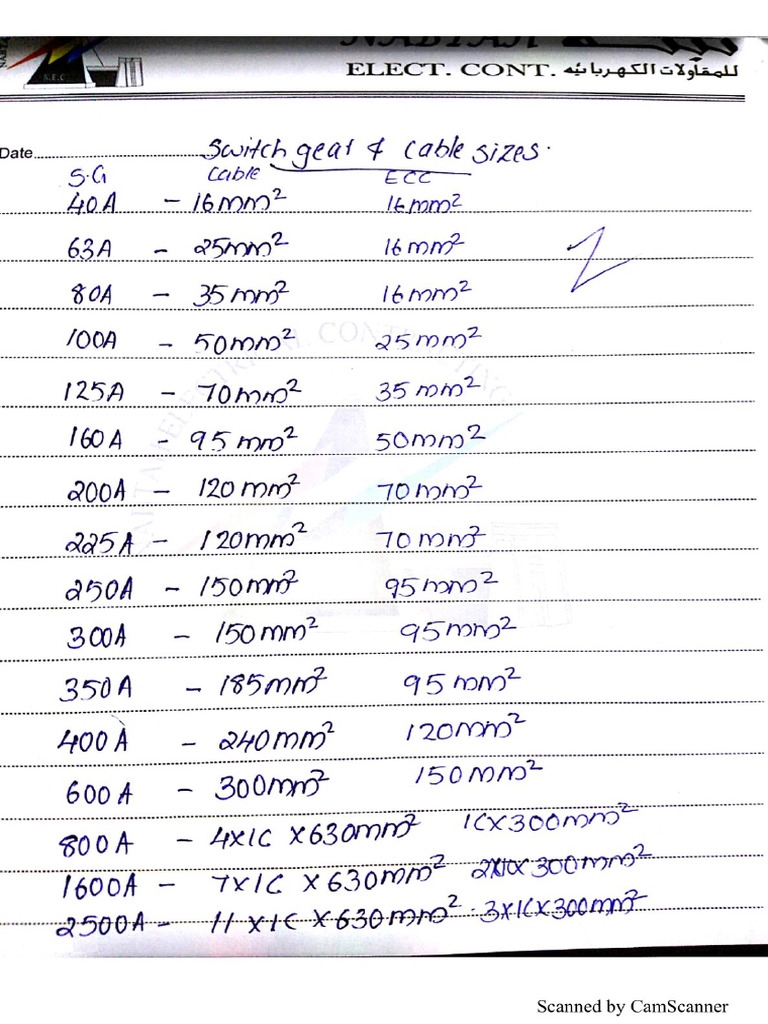 ELECT. CONT. للمقاولات الكهربائيه
S.E.C.
Date
Switch gear & cable sizes.
S.G Cable ECC
40A - 16mm² 16mm²
63A - 25mm² 16mm²
80A - 35mm² 16mm²
100A - 50mm² 25mm²
125A - 70mm² 35mm²
160A - 95mm² 50mm²
200A - 120mm² 70mm²
225A - 120mm² 70mm²
250A - 150mm² 95mm²
300A - 150mm² 95mm²
350A - 185mm² 95mm²
400A - 240mm² 120mm²
600A - 300mm² 150mm²
800A - 4x1C x630mm² 1Cx300mm²
1600A - 7x1C x 630mm² 2x1Cx300mm²
2500A - 11x1C x630mm² 3x1Cx300mm²
Scanned by CamScanner